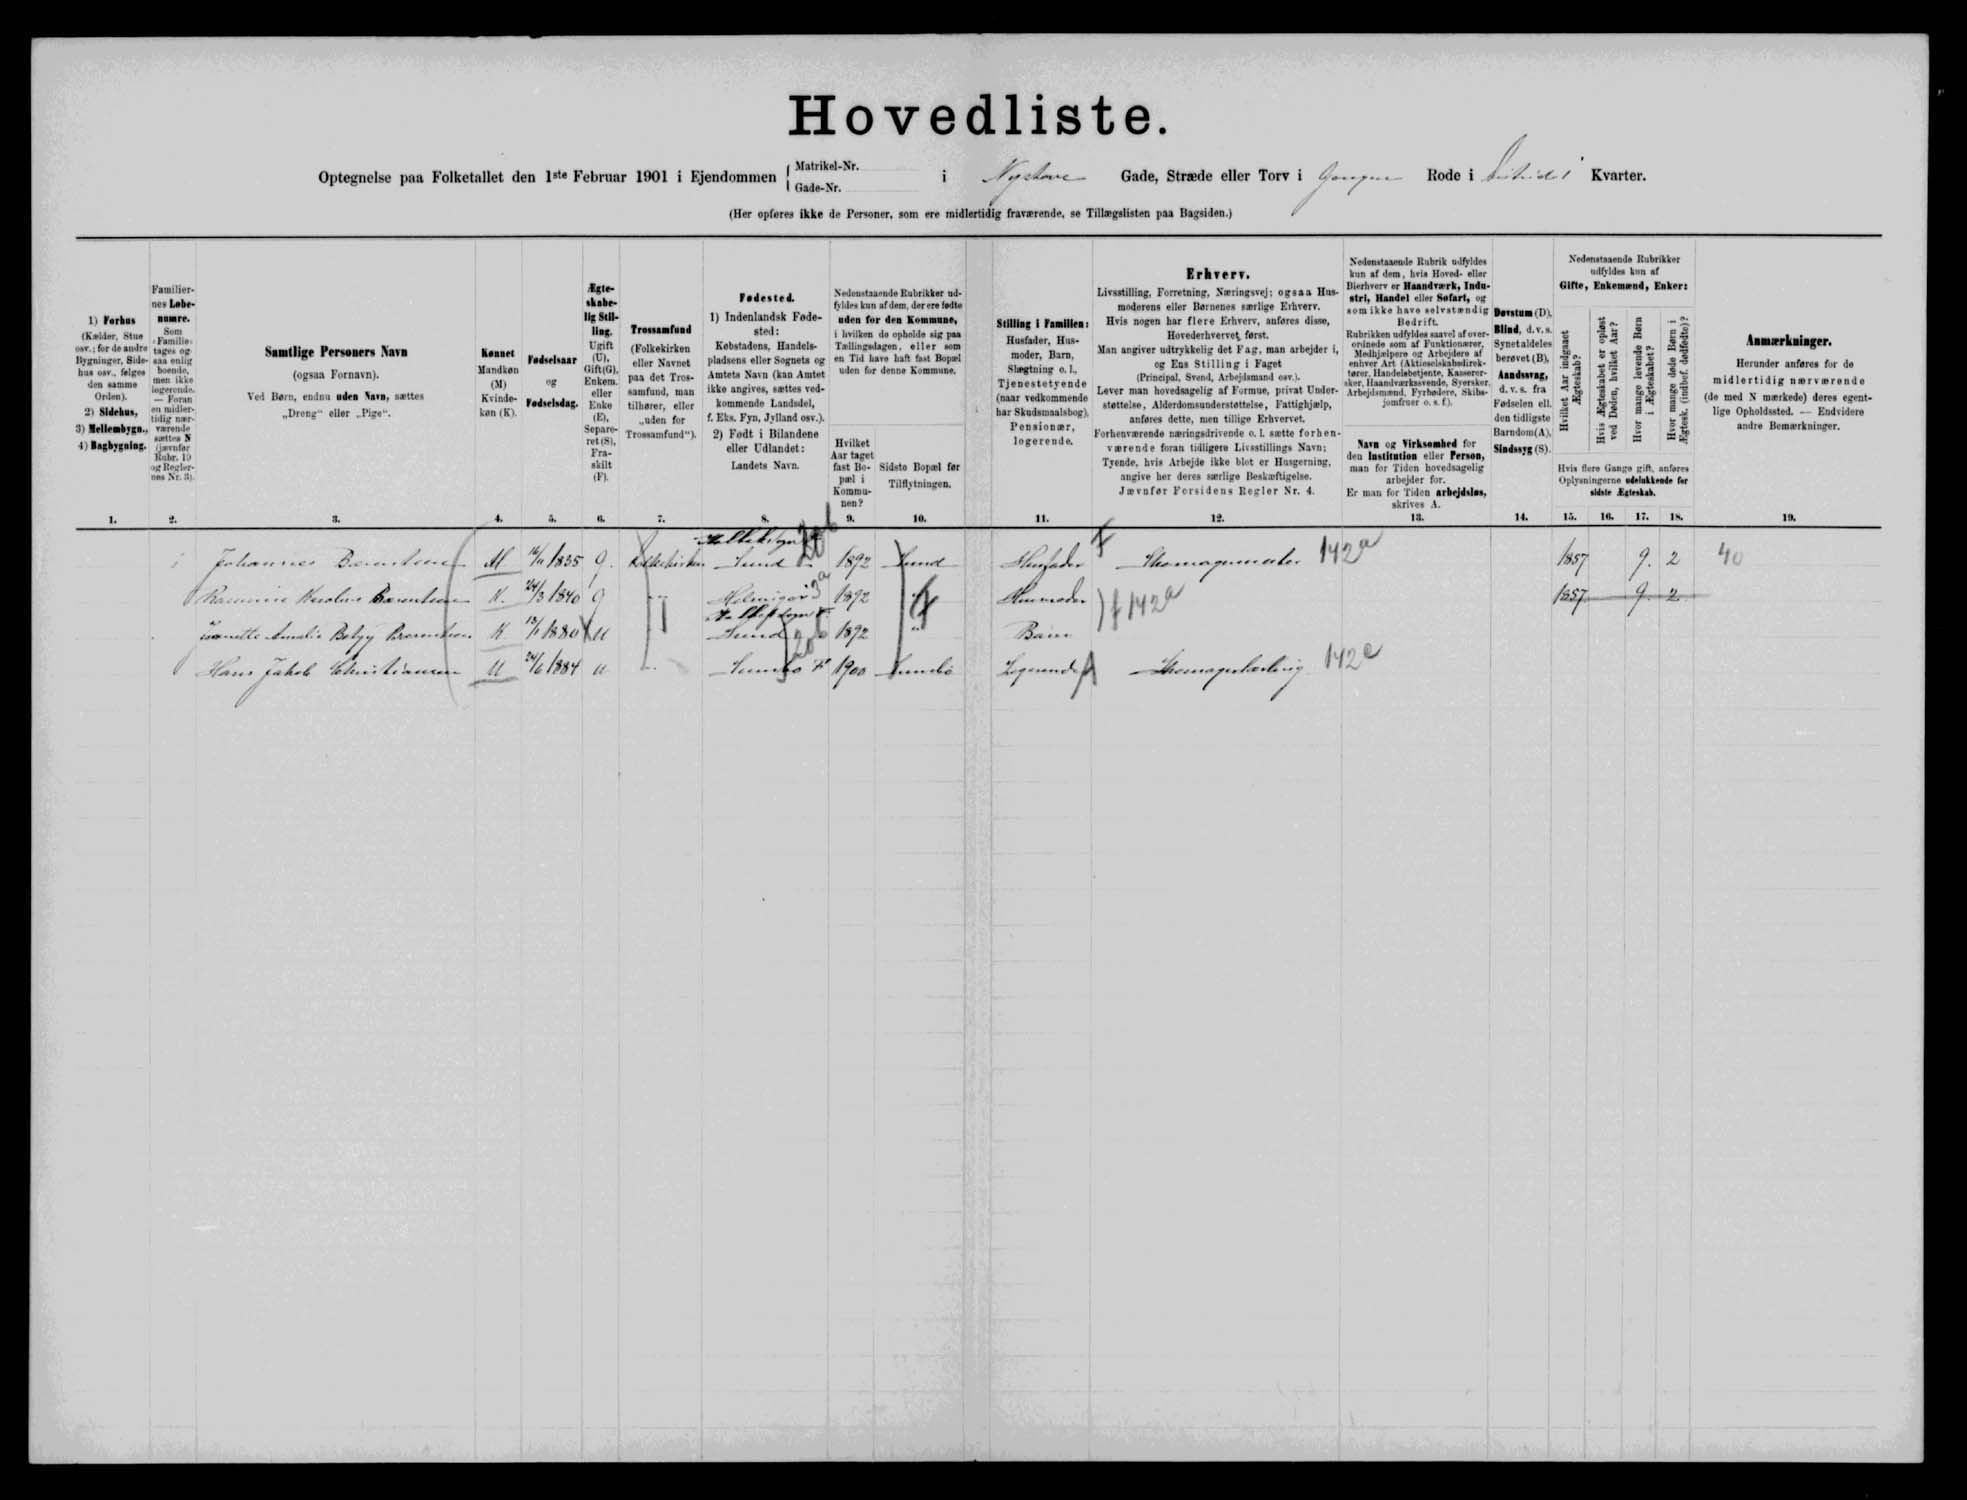 Hovedliste.
Optegnelse paa Folketallet den 1ste Februar 1901 i Ejendommen { Matrikel-Nr. Gade-Nr. i Nystove Gade, Stræde eller Torv i Rode i Kvarter.
(Her opføres ikke de Personer, som ere midlertidig fraværende, se Tillægslisten paa Bagsiden.)
1) Forhus
(Kælder, Stue
osv.; for de andre
Bygninger, Side-
hus osv., følges
den samme
Orden).
2) Sidehus,
3) Mellembygn.,
4) Bagbygning.
Familier-
nes Løbe-
numre.
Som
"Familie"
tages og-
saa enlig
boende,
men ikke
logerende.
— Foran
en midler-
tidig nær-
værende
sættes N
(jævnfør
Rubr. 19
og Regler-
nes Nr. 3).
Samtlige Personers Navn
(ogsaa Fornavn).
Ved Børn, endnu uden Navn, sættes
„Dreng“ eller „Pige“.
Kønnet
Mandkøn
(M)
Kvinde-
køn (K).
Fødselsaar
og
Fødselsdag.
Ægte-
skabe-
lig Stil-
ling.
Ugift
(U),
Gift(G),
Enkem.
eller
Enke
(E),
Separe-
ret (S),
Fra-
skilt
(F).
Trossamfund
(Folkekirken
eller Navnet
paa det Tros-
samfund, man
tilhører, eller
„uden for
Trossamfund“).
Fødested.
1) Indenlandsk Føde-
sted:
Købstadens, Handels-
pladsens eller Sognets og
Amtets Navn (kan Amtet
ikke angives, sættes ved-
kommende Landsdel,
f. Eks. Fyn, Jylland osv.).
2) Født i Bilandene
eller Udlandet:
Landets Navn.
Nedenstaaende Rubrikker ud-
fyldes kun af dem, der ere fødte
uden for den Kommune,
i hvilken de opholde sig paa
Tællingsdagen, eller som
en Tid have haft fast Bopæl
uden for denne Kommune.
Hvilket
Aar taget
fast Bo-
pæl i
Kommu-
nen?
Sidste Bopæl før
Tilflytningen.
Stilling i Familien:
Husfader, Hus-
moder, Barn,
Slægtning o. l.,
Tjenestetyende
(naar vedkommende
har Skudsmaalsbog),
Pensionær,
logerende.
Erhverv.
Livsstilling, Forretning, Næringsvej; ogsaa Hus-
moderens eller Børnenes særlige Erhverv.
Hvis nogen har flere Erhverv, anføres disse,
Hovederhvervet først.
Man angiver udtrykkelig det Fag, man arbejder i,
og Ens Stilling i Faget
(Principal, Svend, Arbejdsmand osv.).
Lever man hovedsagelig af Formue, privat Under-
støttelse, Alderdomsunderstøttelse, Fattighjælp,
anføres dette, men tillige Erhvervet.
Forhenværende næringsdrivende o. l. sætte forhen-
værende foran tidligere Livsstillings Navn;
Tyende, hvis Arbejde ikke blot er Husgerning,
angive her deres særlige Beskæftigelse.
Jævnfør Forsidens Regler Nr. 4.
Nedenstaaende Rubrik udfyldes
kun af dem, hvis Hoved- eller
Bierhverv er Haandværk, Indu-
stri, Handel eller Søfart, og
som ikke have selvstændig
Bedrift.
Rubrikken udfyldes saavel af over-
ordnede som af Funktionærer,
Medhjælpere og Arbejdere af
enhver Art (Aktieselskabsdirek-
tører, Handelsbetjente, Kasserer-
sker, Haandværkssvende, Syersker,
Arbejdsmænd, Fyrbødere, Skibs-
jomfruer o. s. f.).
Navn og Virksomhed for
den Institution eller Person,
man for Tiden hovedsagelig
arbejder for.
Er man for Tiden arbejdsløs,
skrives A.
Døvstum (D),
Blind, d. v. s.
Synet aldeles
berøvet (B),
Aandssvag,
d. v. s. fra
Fødselen ell.
den tidligste
Barndom(A),
Sindssyg (S).
Nedenstaaende Rubrikker
udfyldes kun af
Gifte, Enkemænd, Enker:
Hvilket Aar indgaaet
Ægteskab?
Hvis Ægteskabet er opløst
ved Døden, hvilket Aar?
Hvor mange levende Børn
i Ægteskabet?
Hvor mange døde Børn i
Ægtesk. (indbef. dødfødte)?
Hvis flere Gange gift, anføres
Oplysningerne udelukkende for
sidste Ægteskab.
Anmærkninger.
Herunder anføres for de
midlertidig nærværende
(de med N mærkede) deres egent-
lige Opholdssted. — Endvidere
andre Bemærkninger.
1. 2. 3. 4. 5. 6. 7. 8. 9. 10. 11. 12. 13. 14. 15. 16. 17. 18. 19.
Johannes Bærentsen M 1835 G. Folkekirken Sund 20b 1892 Sund Husfader Skomagermester 142a 1857 9. 2 40
Rasmine Karoline Bærentsen K. 24/3 1840 G " 3a 1892 " Husmoder 142a 1857 9. 2.
Amalie Betzy Bærentsen K 13/1 1880 U Sund 20b 1892 " Barn
Hans Jakob Christiansen M 24/6 1884 U " Sumbø 1900 Sumbø Logerende Skomagerlærling 142a